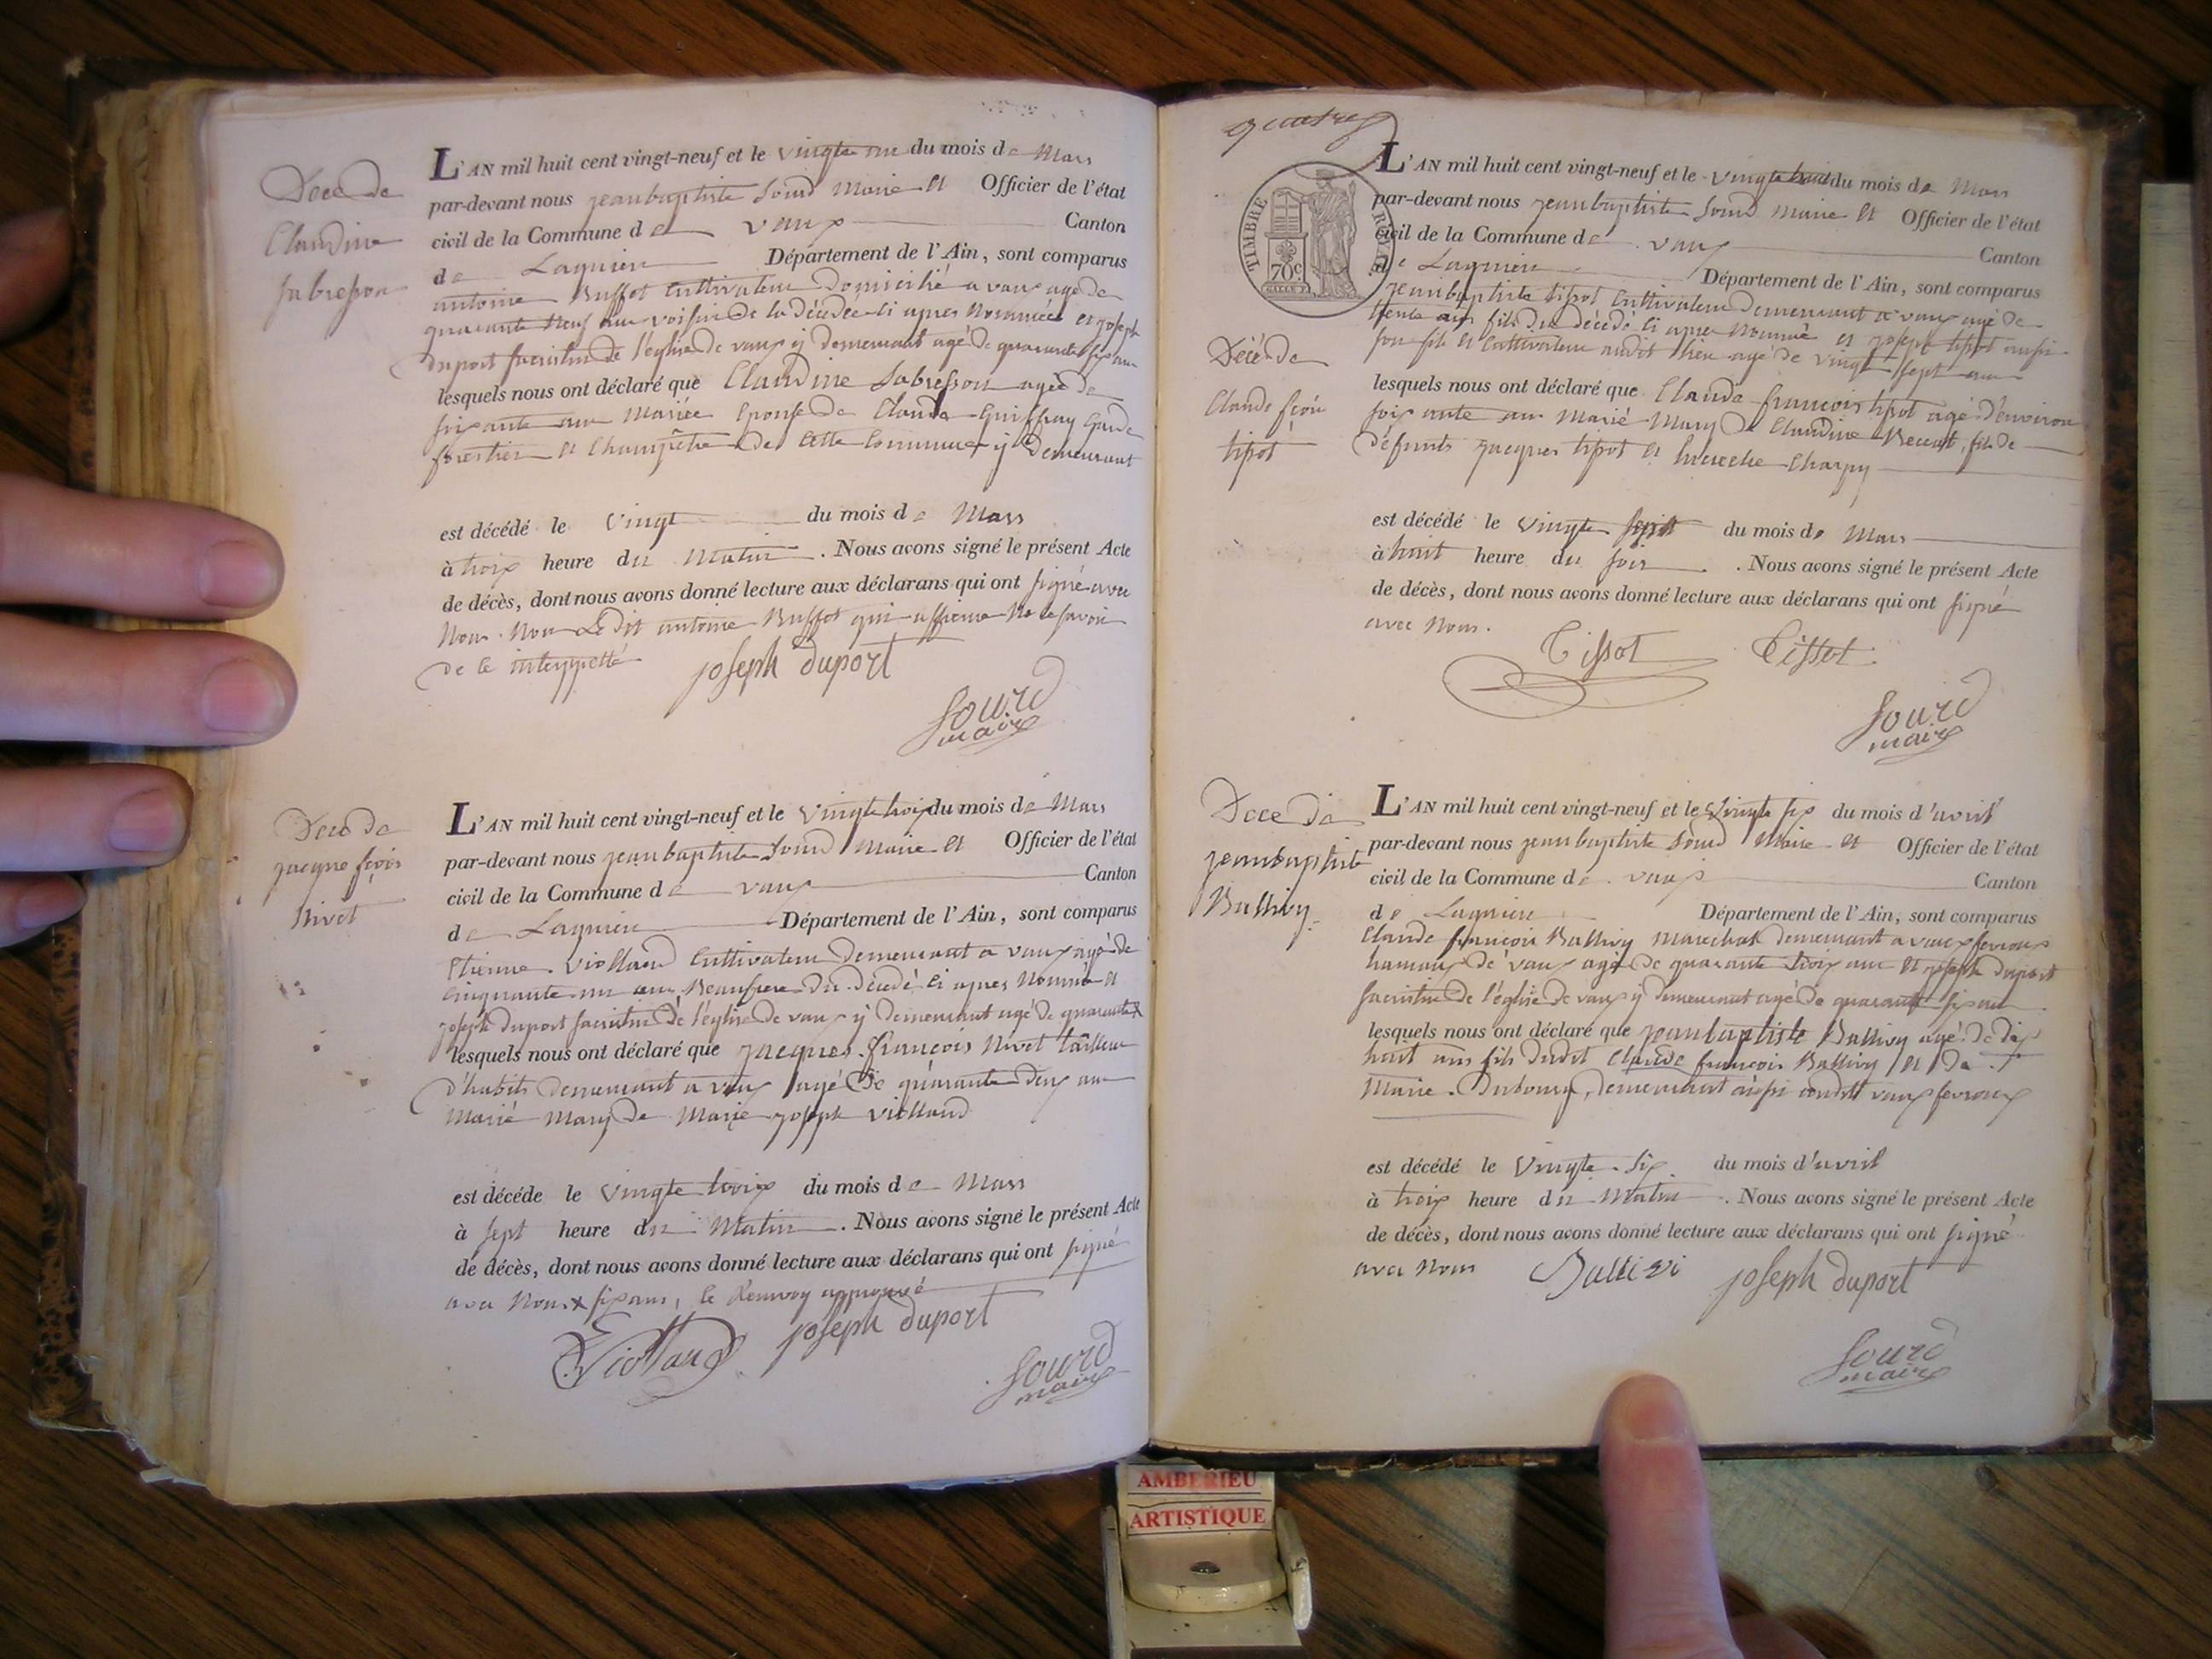 Décè de
Claudine
Sabresson
L'AN mil huit cent vingt-neuf et le vingte un du mois de Mars
par-devant nous jeanbaptiste Sourd Maire et Officier de l'état
civil de la Commune de vaux Canton
de Lagnieu Département de l'Ain, sont comparus
antoine Buffet Cultivateur Domicilié a vaux agé de
quarante neuf ans voisin de la décédée ci apres Nommée et joseph
duport sacristin de l'église de vaux y demeurant agé de quarante six ans
lesquels nous ont déclaré que Claudine Sabresson agée de
soixante ans Mariée Epouse de Claude Guiffray Garde
forestier et Champêtre de Cette Commune y demeurant
est décédé le Vingt du mois de Mars
à troix heure du Matin. Nous avons signé le présent Acte
de décès, dont nous avons donné lecture aux déclarans qui ont signé avec
Nous. Non Le dit antoine Buffet qui affirme Ne le savoir
de ce interppellé
joseph duport
Sourd
maire
Décè de
jacque fçois
Nivet
L'AN mil huit cent vingt-neuf et le Vingte troix du mois de Mars
par-devant nous jeanbaptiste Sourd Maire et Officier de l'état
civil de la Commune de vaux Canton
de Lagnieu Département de l'Ain, sont comparus
Etienne Viollaud Cultivateur demeurant a vaux agé de
Cinquante un ans Beaufrere du décédé ci apres Nommé et
joseph duport sacristin de l'église de vaux y demeurant agé de quarante x
lesquels nous ont déclaré que jacques françois Nivet tailleur
d'habits demeurant a vaux agé de quarante deux ans
Marié Mary de Marie joseph Viollaud
est décéde le Vingte troix du mois de Mars
à sept heure du Matin. Nous avons signé le présent Acte
de décès, dont nous avons donné lecture aux déclarans qui ont signé
avec Nous x six ans, le Renvoy approuvé
Viollaud joseph duport
Sourd
maire
quatre
TIMBRE ROYAL
70c
Décè de
Claude fçois
tisot
L'AN mil huit cent vingt-neuf et le Vingte huit du mois de Mars
par-devant nous jeanbaptiste Sourd Maire et Officier de l'état
civil de la Commune de vaux Canton
de Lagnieu Département de l'Ain, sont comparus
jeanbaptiste tisot Cultivateur demeurant a vaux agé de
trente ans fils du décédé ci apres Nommé et joseph tisot aussi
son fils et Cultivateur audit lieu agé de vingt sept ans
lesquels nous ont déclaré que Claude françois tisot agé d'environ
soixante ans Marié Mary de Claudine fils de
défunts jacques tisot et Charpy
est décédé le Vingte sept du mois de Mars
à huit heure du soir. Nous avons signé le présent Acte
de décès, dont nous avons donné lecture aux déclarans qui ont signé
avec Nous.
Tissot Tissot
Sourd
maire
Décè de
jeanbaptiste
Ballivy
L'AN mil huit cent vingt-neuf et le Vingte six du mois d'avril
par-devant nous jeanbaptiste Sourd Maire et Officier de l'état
civil de la Commune de vaux Canton
de Lagnieu Département de l'Ain, sont comparus
Claude françois Ballivy Marechal demeurant a vaux fevroux
hamaux de vaux agé de quarante troix ans et joseph duport
sacristin de l'église de vaux y demeurant agé de quarante six ans
lesquels nous ont déclaré que jeanbaptiste Ballivy agé de dix
huit ans fils dudit Claude françois Ballivy et de
Marie Dubourg, demeurant aussi audit vaux fevroux
est décédé le Vingte six du mois d'avril
à troix heure du Matin. Nous avons signé le présent Acte
de décès, dont nous avons donné lecture aux déclarans qui ont signé
avec Nous Ballivi joseph duport
Sourd
maire
AMBERIEU
ARTISTIQUE